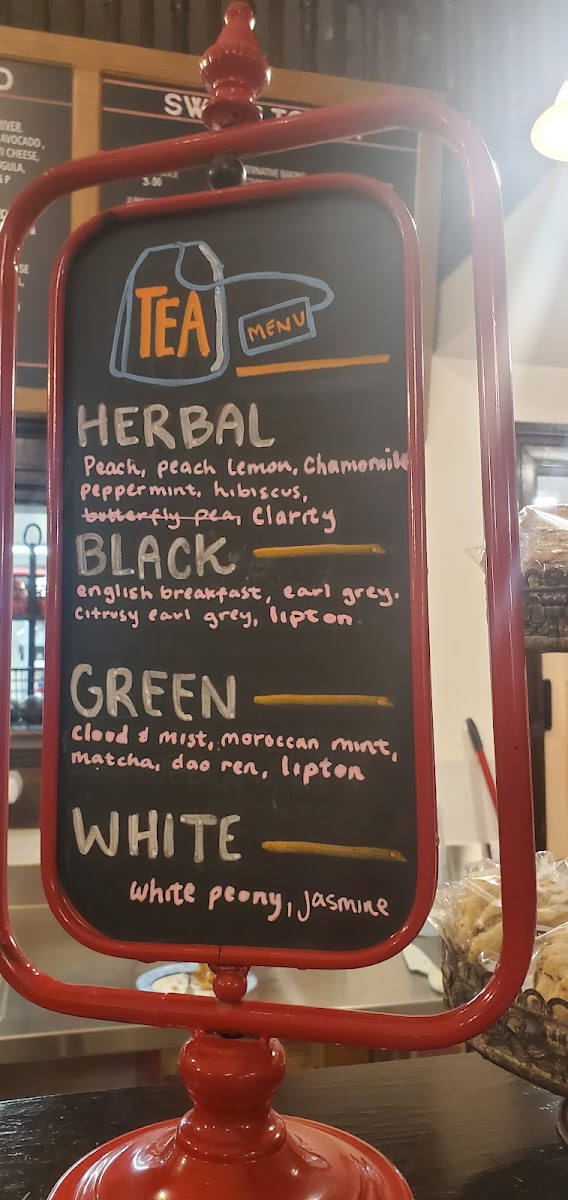 RIVER
AVOCADO,
CHEESE,
TEA
MENU
HERBAL
Peach, peach lemon, Chamomile
peppermint, hibiscus,
butterfly pea, Clarity
BLACK
english breakfast, earl grey.
citrusy earl grey, lipton
GREEN
cloud & mist, moroccan mint,
matcha, dao ren, lipton
WHITE
white peony, jasmine